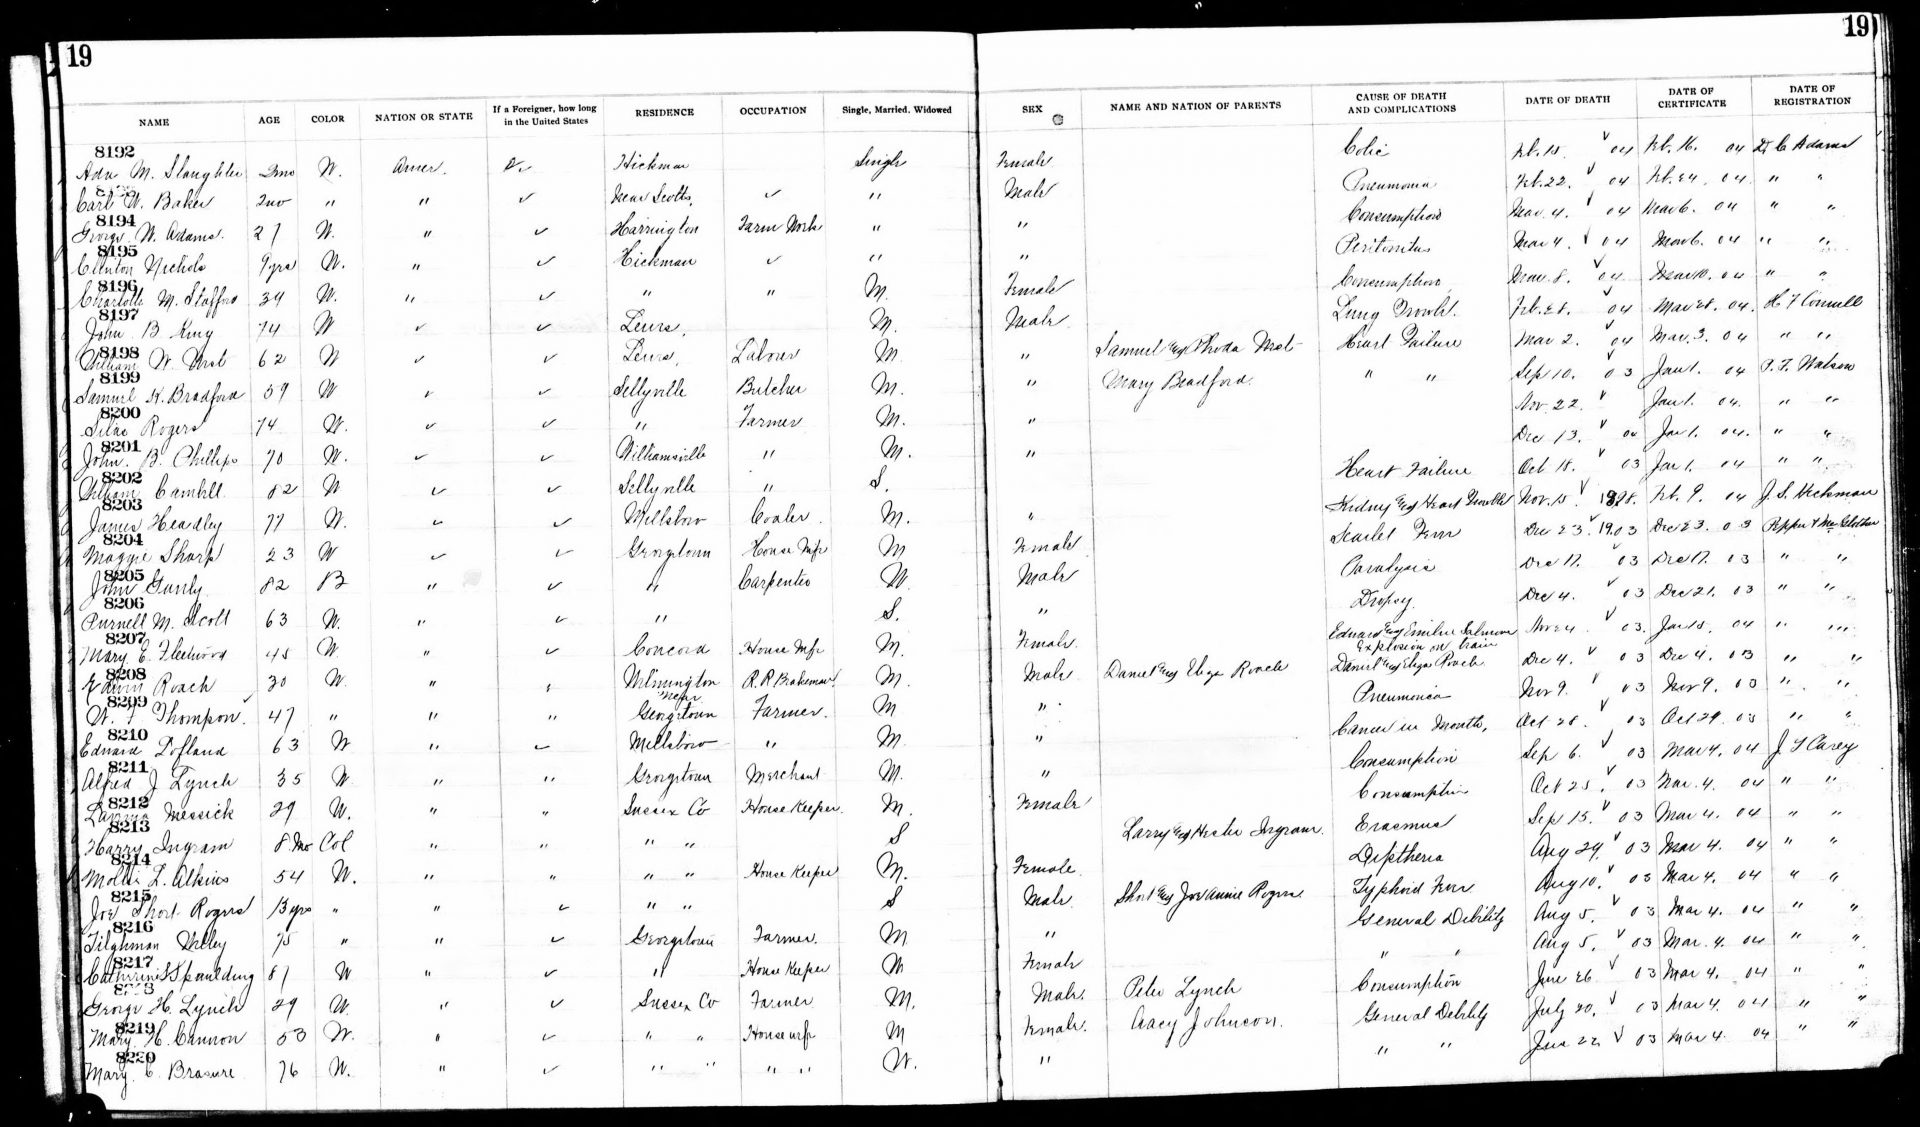 19 19
NAME AGE COLOR NATION OR STATE If a Foreigner, how long in the United States RESIDENCE OCCUPATION Single, Married, Widowed SEX NAME AND NATION OF PARENTS CAUSE OF DEATH AND COMPLICATIONS DATE OF DEATH DATE OF CERTIFICATE DATE OF REGISTRATION
8192
Ada M. Slaughter 2mo W. Amer. Hickman Single Female Colic Feb. 15. 04 Feb. 16. 04 Adams
Carl W. Baker 2mo " " Near Scotts, " Male Pneumonia Feb. 22. 04 Feb. 24. 04 " "
8194
George W. Adams. 27 W. " Harrington Farm Work " " Consumption Mar. 4. 04 Mar 6. 04 " "
8195
Clinton Nichols 9yrs W. " Hickman " " Peritonitus Mar 4. 04 Mar 6. 04 " "
8196
Charlotte M. Stafford 34 W. " " " M. Female Consumption Mar. 8. 04 Mar 10. 04 " "
8197
John B. King 74 W Lewes, M. Male Lung Trouble. Feb. 28. 04 Mar 28. 04.
8198
William W. West 62 W Lewes, Labour M. " Samuel & Rhoda West Heart Failure Mar 2. 04 Mar. 3. 04 " "
8199
Samuel H. Bradford 59 W Sellyville Butcher M. " Mary Bradford. " " Sep 10. 03 Jan 1. 04 Watson
8200
Silas Rogers 74 W. " Farmer M. " Nov. 22. Jan 1. 04. " "
8201
John. B. Phillips 70 W. Williamsville " M. " Dec 13. Jan 1. 04. " "
8202
William 82 W Sellyville " S. Heart Failure Oct 18. 03 Jan 1. 04 " "
8203
James Headley 77 W. Millsboro M. " Kidney & Heart Trouble Nov. 15 1898. Feb. 9. 04 J. S. Hickman
8204
Maggie Sharp 23 W Georgetown House Wife M Female Scarlet Fever Dec 23 1903 Dec 23. 03
8205
John 82 B " " Carpenter W. Male Paralysis Dec 17. 03 Dec 17. 03 " "
8206
Purnell M. Scott 63 W. " " S. " Dropsy. Dec 4. 03 Dec 21. 03 " "
8207
Mary E. Fleetwood 45 W " Concord House Wife M. Female Edward & Emiline Salmons Nov 24 03. Jan 15. 04 " "
8208
Edwin Roach 30 W. " Wilmington R. R Brakeman. M. Male Daniel & Eliza Roach Explosion on train Daniel & Eliza Roach Dec 4. 03 Dec 4. 03 " "
8209
W. F. Thompson 47 " " " Near Georgetown Farmer. M " Pneumonia Nov 9. 03 Nov 9. 03 " "
8210
Edward Dofland 63 W " Millsboro " M. " Cancer in Mouth, Oct 28. 03 Oct 29. 03 " "
8211
Alfred J. Lynch 35 W. " " Georgetown Merchant M. " Consumption Sep 6. 03 Mar 4. 04 Carey
8212
Messick 29 W. " " Sussex Co House Keeper. M. Female Consumption Oct 25. 03 Mar. 4. 04 " "
8213
Harry Ingram 8 Mo Col " " " " S Larry & Hester Ingram. Erasmus Sep 15. 03 Mar 4. 04 " "
8214
Mollie L. Atkins 54 W. " " " " House Keeper M. Female Diptheria Aug 29. 03 Mar 4. 04 " "
8215
Joe Short Rogers 13 yrs " " " " S Male. Short & Annie Rogers Typhoid Fever Aug 10. 03 Mar 4. 04 " "
8216
Tilghman 75 " " Georgetown Farmer. M " General Debility Aug 5. 03 Mar 4. 04 " "
8217
Catherine S Spaulding 81 W " " House Keeper W Female " " Aug 5. 03 Mar. 4. 04 " "
George H. Lynch 29 W. " Sussex Co Farmer M. Male. Peter Lynch Consumption June 26. 03 Mar 4. 04 " "
8219
Mary. H. Cannon 53 W. " " " Housewife M Female. Johnson. General Debility July 20. 03 Mar 4. 04 " "
8220
Mary. C. Brasure 76 W. " " " " " W. " " " June 22. 03 Mar 4. 04 " "